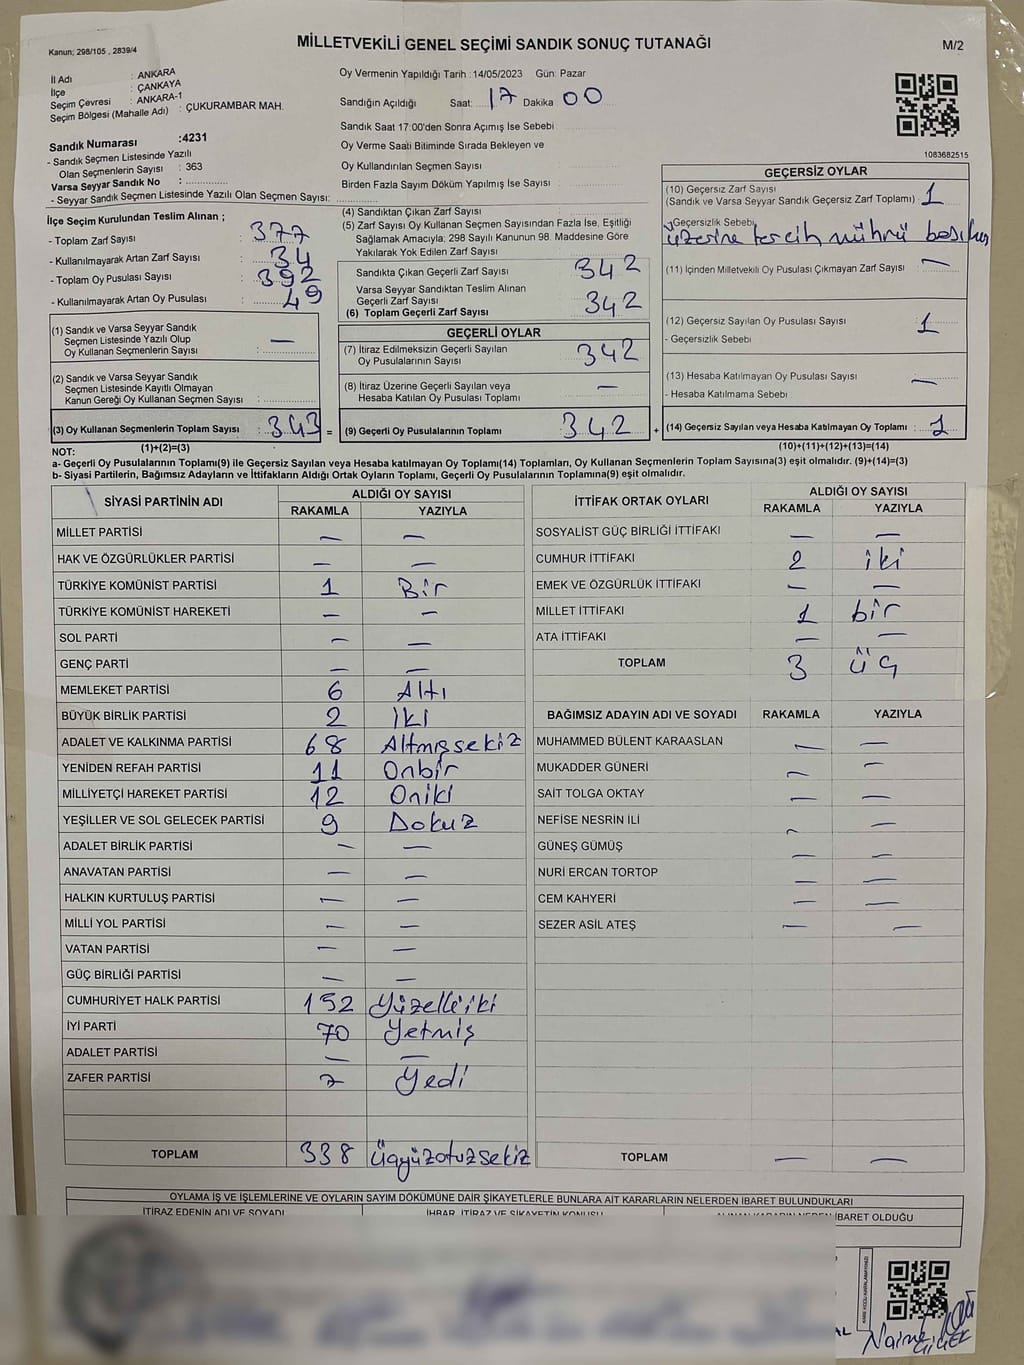 Kanun; 298/105 , 2839/4
MİLLETVEKİLİ GENEL SEÇİMİ SANDIK SONUÇ TUTANAĞI
M/2
İl Adı : ANKARA
İlçe : ÇANKAYA
Seçim Çevresi : ANKARA-1
Seçim Bölgesi (Mahalle Adı) : ÇUKURAMBAR MAH.
Sandık Numarası :4231
- Sandık Seçmen Listesinde Yazılı
Olan Seçmenlerin Sayısı : 363
Varsa Seyyar Sandık No :
- Seyyar Sandık Seçmen Listesinde Yazılı Olan Seçmen Sayısı:
Oy Vermenin Yapıldığı Tarih : 14/05/2023 Gün: Pazar
Sandığın Açıldığı Saat: 17 Dakika 00
Sandık Saat 17:00'den Sonra Açımış İse Sebebi
Oy Verme Saati Bitiminde Sırada Bekleyen ve
Oy Kullandırılan Seçmen Sayısı
Birden Fazla Sayım Döküm Yapılmış İse Sayısı
1083682515
İlçe Seçim Kurulundan Teslim Alınan ;
- Toplam Zarf Sayısı : 377
- Kullanılmayarak Artan Zarf Sayısı : 34
- Toplam Oy Pusulası Sayısı : 392
- Kullanılmayarak Artan Oy Pusulası : 49
(1) Sandık ve Varsa Seyyar Sandık
Seçmen Listesinde Yazılı Olup
Oy Kullanan Seçmenlerin Sayısı : —
(2) Sandık ve Varsa Seyyar Sandık
Seçmen Listesinde Kayıtlı Olmayan
Kanun Gereği Oy Kullanan Seçmen Sayısı :
(3) Oy Kullanan Seçmenlerin Toplam Sayısı : 343 =
(1)+(2)=(3)
(4) Sandıktan Çıkan Zarf Sayısı :
(5) Zarf Sayısı Oy Kullanan Seçmen Sayısından Fazla İse, Eşitliği
Sağlamak Amacıyla; 298 Sayılı Kanunun 98. Maddesine Göre
Yakılarak Yok Edilen Zarf Sayısı
Sandıkta Çıkan Geçerli Zarf Sayısı 342
Varsa Seyyar Sandıktan Teslim Alınan
Geçerli Zarf Sayısı
(6) Toplam Geçerli Zarf Sayısı 342
GEÇERLİ OYLAR
(7) İtiraz Edilmeksizin Geçerli Sayılan
Oy Pusulalarının Sayısı 342
(8) İtiraz Üzerine Geçerli Sayılan veya
Hesaba Katılan Oy Pusulası Toplamı —
(9) Geçerli Oy Pusulalarının Toplamı 342 +
GEÇERSİZ OYLAR
(10) Geçersiz Zarf Sayısı
(Sandık ve Varsa Seyyar Sandık Geçersiz Zarf Toplamı) 1
- Geçersizlik Sebebi
üzerine tercih mührü
(11) İçinden Milletvekili Oy Pusulası Çıkmayan Zarf Sayısı —
(12) Geçersiz Sayılan Oy Pusulası Sayısı 1
- Geçersizlik Sebebi
(13) Hesaba Katılmayan Oy Pusulası Sayısı —
- Hesaba Katılmama Sebebi
(14) Geçersiz Sayılan veya Hesaba Katılmayan Oy Toplamı : 1
(10)+(11)+(12)+(13)=(14)
NOT:
a- Geçerli Oy Pusulalarının Toplamı(9) ile Geçersiz Sayılan veya Hesaba katılmayan Oy Toplamı(14) Toplamları, Oy Kullanan Seçmenlerin Toplam Sayısına(3) eşit olmalıdır. (9)+(14)=(3)
b- Siyasi Partilerin, Bağımsız Adayların ve İttifakların Aldığı Ortak Oyların Toplamı, Geçerli Oy Pusulalarının Toplamına(9) eşit olmalıdır.
SİYASİ PARTİNİN ADI ALDIĞI OY SAYISI
RAKAMLA YAZIYLA
MİLLET PARTİSİ — —
HAK VE ÖZGÜRLÜKLER PARTİSİ — —
TÜRKİYE KOMÜNİST PARTİSİ 1 Bir
TÜRKİYE KOMÜNİST HAREKETİ — —
SOL PARTİ — —
GENÇ PARTİ — —
MEMLEKET PARTİSİ 6 Altı
BÜYÜK BİRLİK PARTİSİ 2 İki
ADALET VE KALKINMA PARTİSİ 68 Altmışsekiz
YENİDEN REFAH PARTİSİ 11 Onbir
MİLLİYETÇİ HAREKET PARTİSİ 12 Oniki
YEŞİLLER VE SOL GELECEK PARTİSİ 9 Dokuz
ADALET BİRLİK PARTİSİ — —
ANAVATAN PARTİSİ — —
HALKIN KURTULUŞ PARTİSİ — —
MİLLİ YOL PARTİSİ — —
VATAN PARTİSİ — —
GÜÇ BİRLİĞİ PARTİSİ — —
CUMHURİYET HALK PARTİSİ 152 Yüzelliiki
İYİ PARTİ 70 Yetmiş
ADALET PARTİSİ — —
ZAFER PARTİSİ 7 Yedi
TOPLAM 338 Üçyüzotuzsekiz
İTTİFAK ORTAK OYLARI ALDIĞI OY SAYISI
RAKAMLA YAZIYLA
SOSYALİST GÜÇ BİRLİĞİ İTTİFAKI — —
CUMHUR İTTİFAKI 2 iki
EMEK VE ÖZGÜRLÜK İTTİFAKI — —
MİLLET İTTİFAKI 1 bir
ATA İTTİFAKI — —
TOPLAM 3 üç
BAĞIMSIZ ADAYIN ADI VE SOYADI RAKAMLA YAZIYLA
MUHAMMED BÜLENT KARAASLAN — —
MUKADDER GÜNERİ — —
SAİT TOLGA OKTAY — —
NEFİSE NESRİN İLİ — —
GÜNEŞ GÜMÜŞ — —
NURİ ERCAN TORTOP — —
CEM KAHYERİ — —
SEZER ASİL ATEŞ — —
TOPLAM — —
OYLAMA İŞ VE İŞLEMLERİNE VE OYLARIN SAYIM DÖKÜMÜNE DAİR ŞİKAYETLERLE BUNLARA AİT KARARLARIN NELERDEN İBARET BULUNDUKLARI
İTİRAZ EDENİN ADI VE SOYADI İHBAR, İTİRAZ VE ŞİKAYETİN KONUSU ALINAN KARARIN NEDEN İBARET OLDUĞU